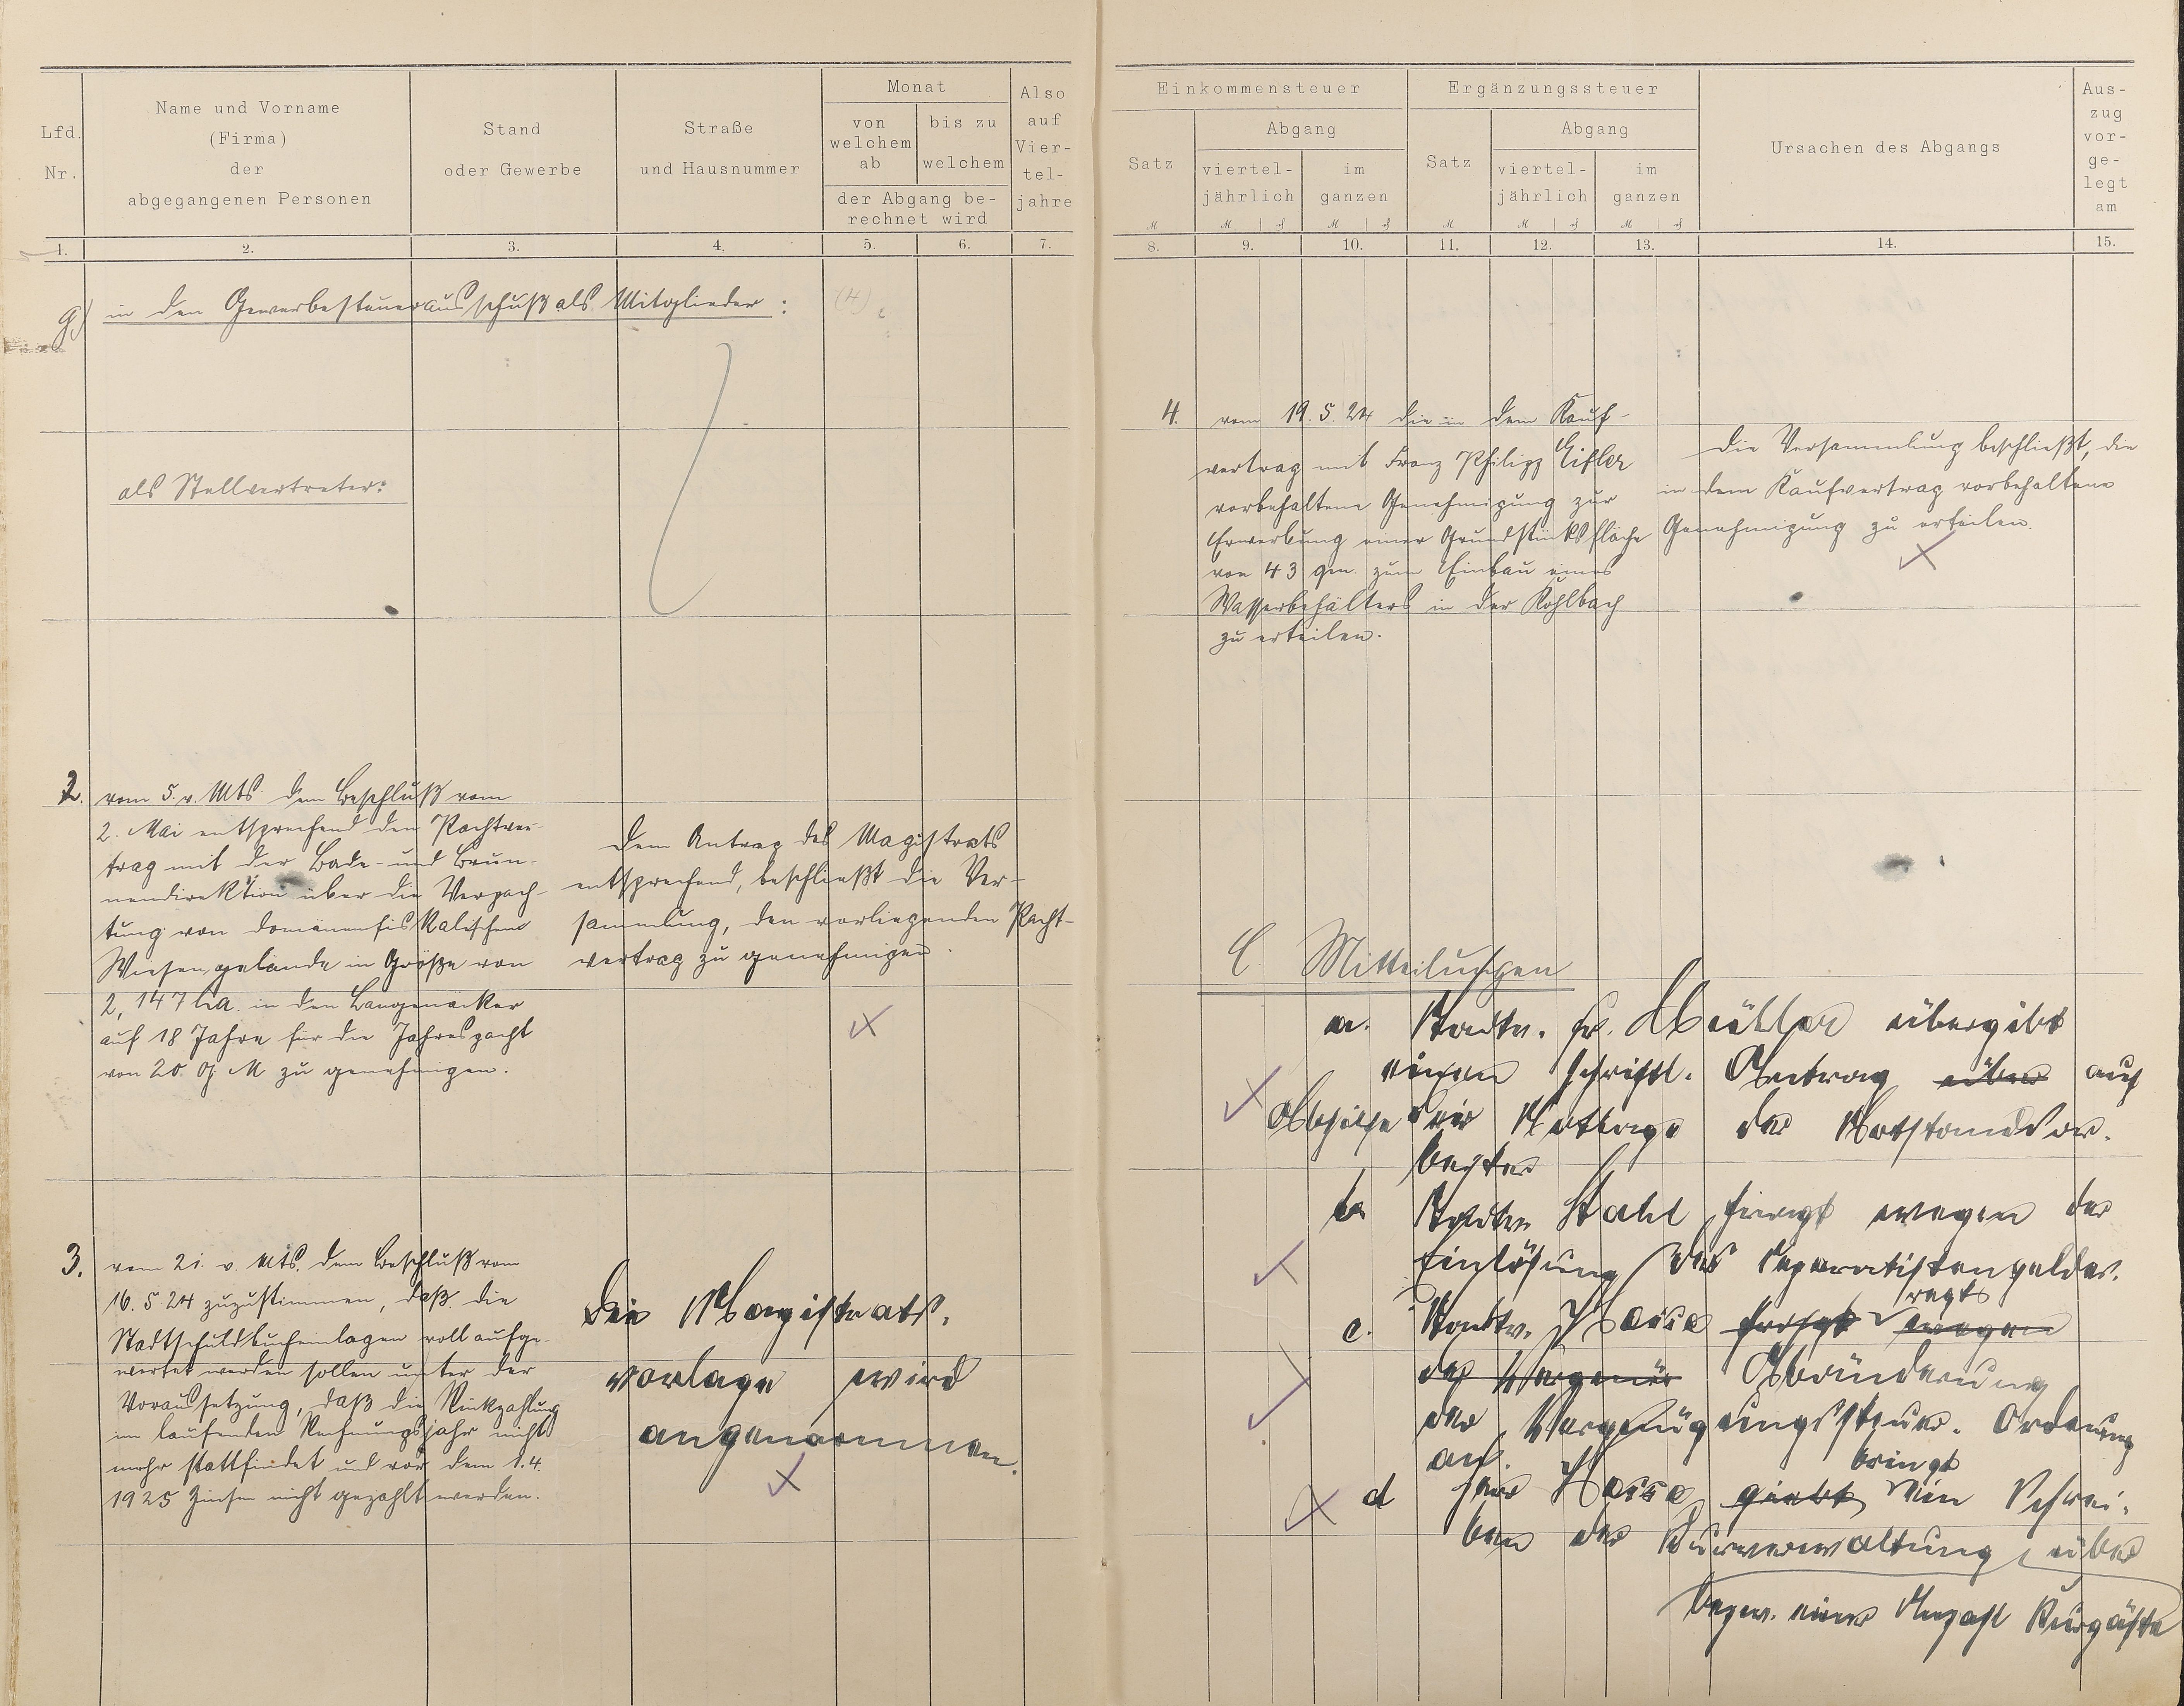 Lfd. Nr.
Name und Vorname
(Firma)
der
abgegangenen Personen
Stand
oder Gewerbe
Straße
und Hausnummer
Monat
von welchem ab
bis zu welchem
der Abgang be-
rechnet wird
Also auf Vier-tel-jahre
1. 2. 3. 4. 5. 6. 7.
g) in den Gewerbesteuerausschuß als Mitglieder: (4)
als Stellvertreter:
2. vom 5. v. Mts. dem Beschluß vom
2. Mai entsprechend den Pachtver-
trag mit der Bade- und Brun-
nendirektion über die Verpach-
tung von domänenfiskalischem
Wiesengelände in Größe von
2,147 ha. in den Langenäcker
auf 18 Jahre für die Jahrespacht
von 20 G M zu genehmigen.
Dem Antrag des Magistrats
entsprechend, beschließt die Ver-
sammlung, den vorliegenden Pacht-
vertrag zu genehmigen.
3. vom 21. v. Mts. dem Beschluß vom
16.5.24 zuzustimmen, daß die
Stadtschuldbucheinlagen voll aufge-
wertet werden sollen unter der
Voraussetzung, daß die Rückzahlung
im laufenden Rechnungsjahr nicht
mehr stattfindet und vor dem 1.4.
1925 Zinsen nicht gezahlt werden.
Die Magistrats-
vorlage wird
angenommen.
Einkommensteuer
Satz
Abgang
viertel-
jährlich
im
ganzen
Ergänzungssteuer
Satz
Abgang
viertel-
jährlich
im
ganzen
Ursachen des Abgangs
Aus-
zug
vor-
ge-
legt
am
8. 9. 10. 11. 12. 13. 14. 15.
4. vom 19.5.24 die in dem Kauf-
vertrag mit Franz Philipp Eifler
vorbehaltene Genehmigung zur
Erwerbung einer Grundstücksfläche
von 43 qm. zum Einbau eines
Wasserbehälters in der Kohlbach
zu erteilen.
Die Versammlung beschließt, die
in dem Kaufvertrag vorbehaltene
Genehmigung zu erteilen.
C. Mitteilungen
a. Stadtv. Fr. Müller übergibt
einen schriftl. Antrag über auf
Abhilfe der Notlage der Notstandsar-
beiter
b. Stadtv. Stahl fragt wegen der
Einlösung des Separatistengeldes.
c. Stadtv. Hoise fragt regt wegen
der Vergnü Abänderung
der Vergnügungssteuer-Ordnung
an.
d Herr Hoise giebt bringt ein Schrei-
ben der Kurverwaltung über
bezw. einer Anzahl Kurgäste